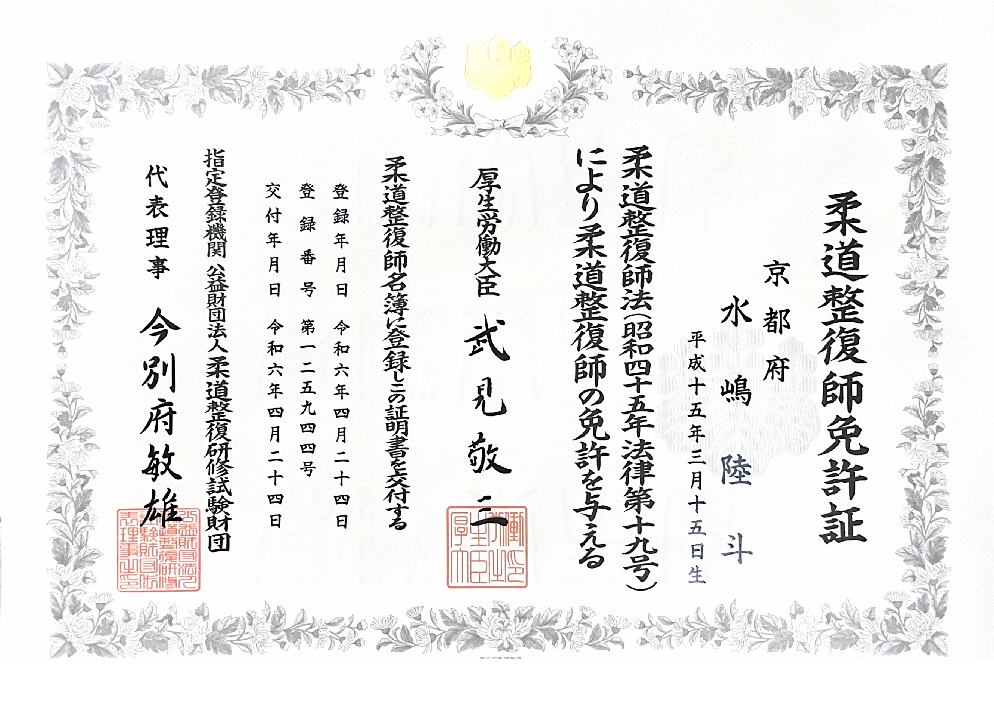 柔道整復師免許証
京都府
水嶋陸斗
平成十五年三月十五日生
柔道整復師法(昭和四十五年法律第十九号)
により柔道整復師の免許を与える
厚生労働大臣 武見敬三
柔道整復師名簿に登録しこの証明書を交付する
登録年月日 令和六年四月二十四日
登録番号 第一二五九四四号
交付年月日 令和六年四月二十四日
指定登録機関 公益財団法人 柔道整復研修試験財団
代表理事 今別府敏雄